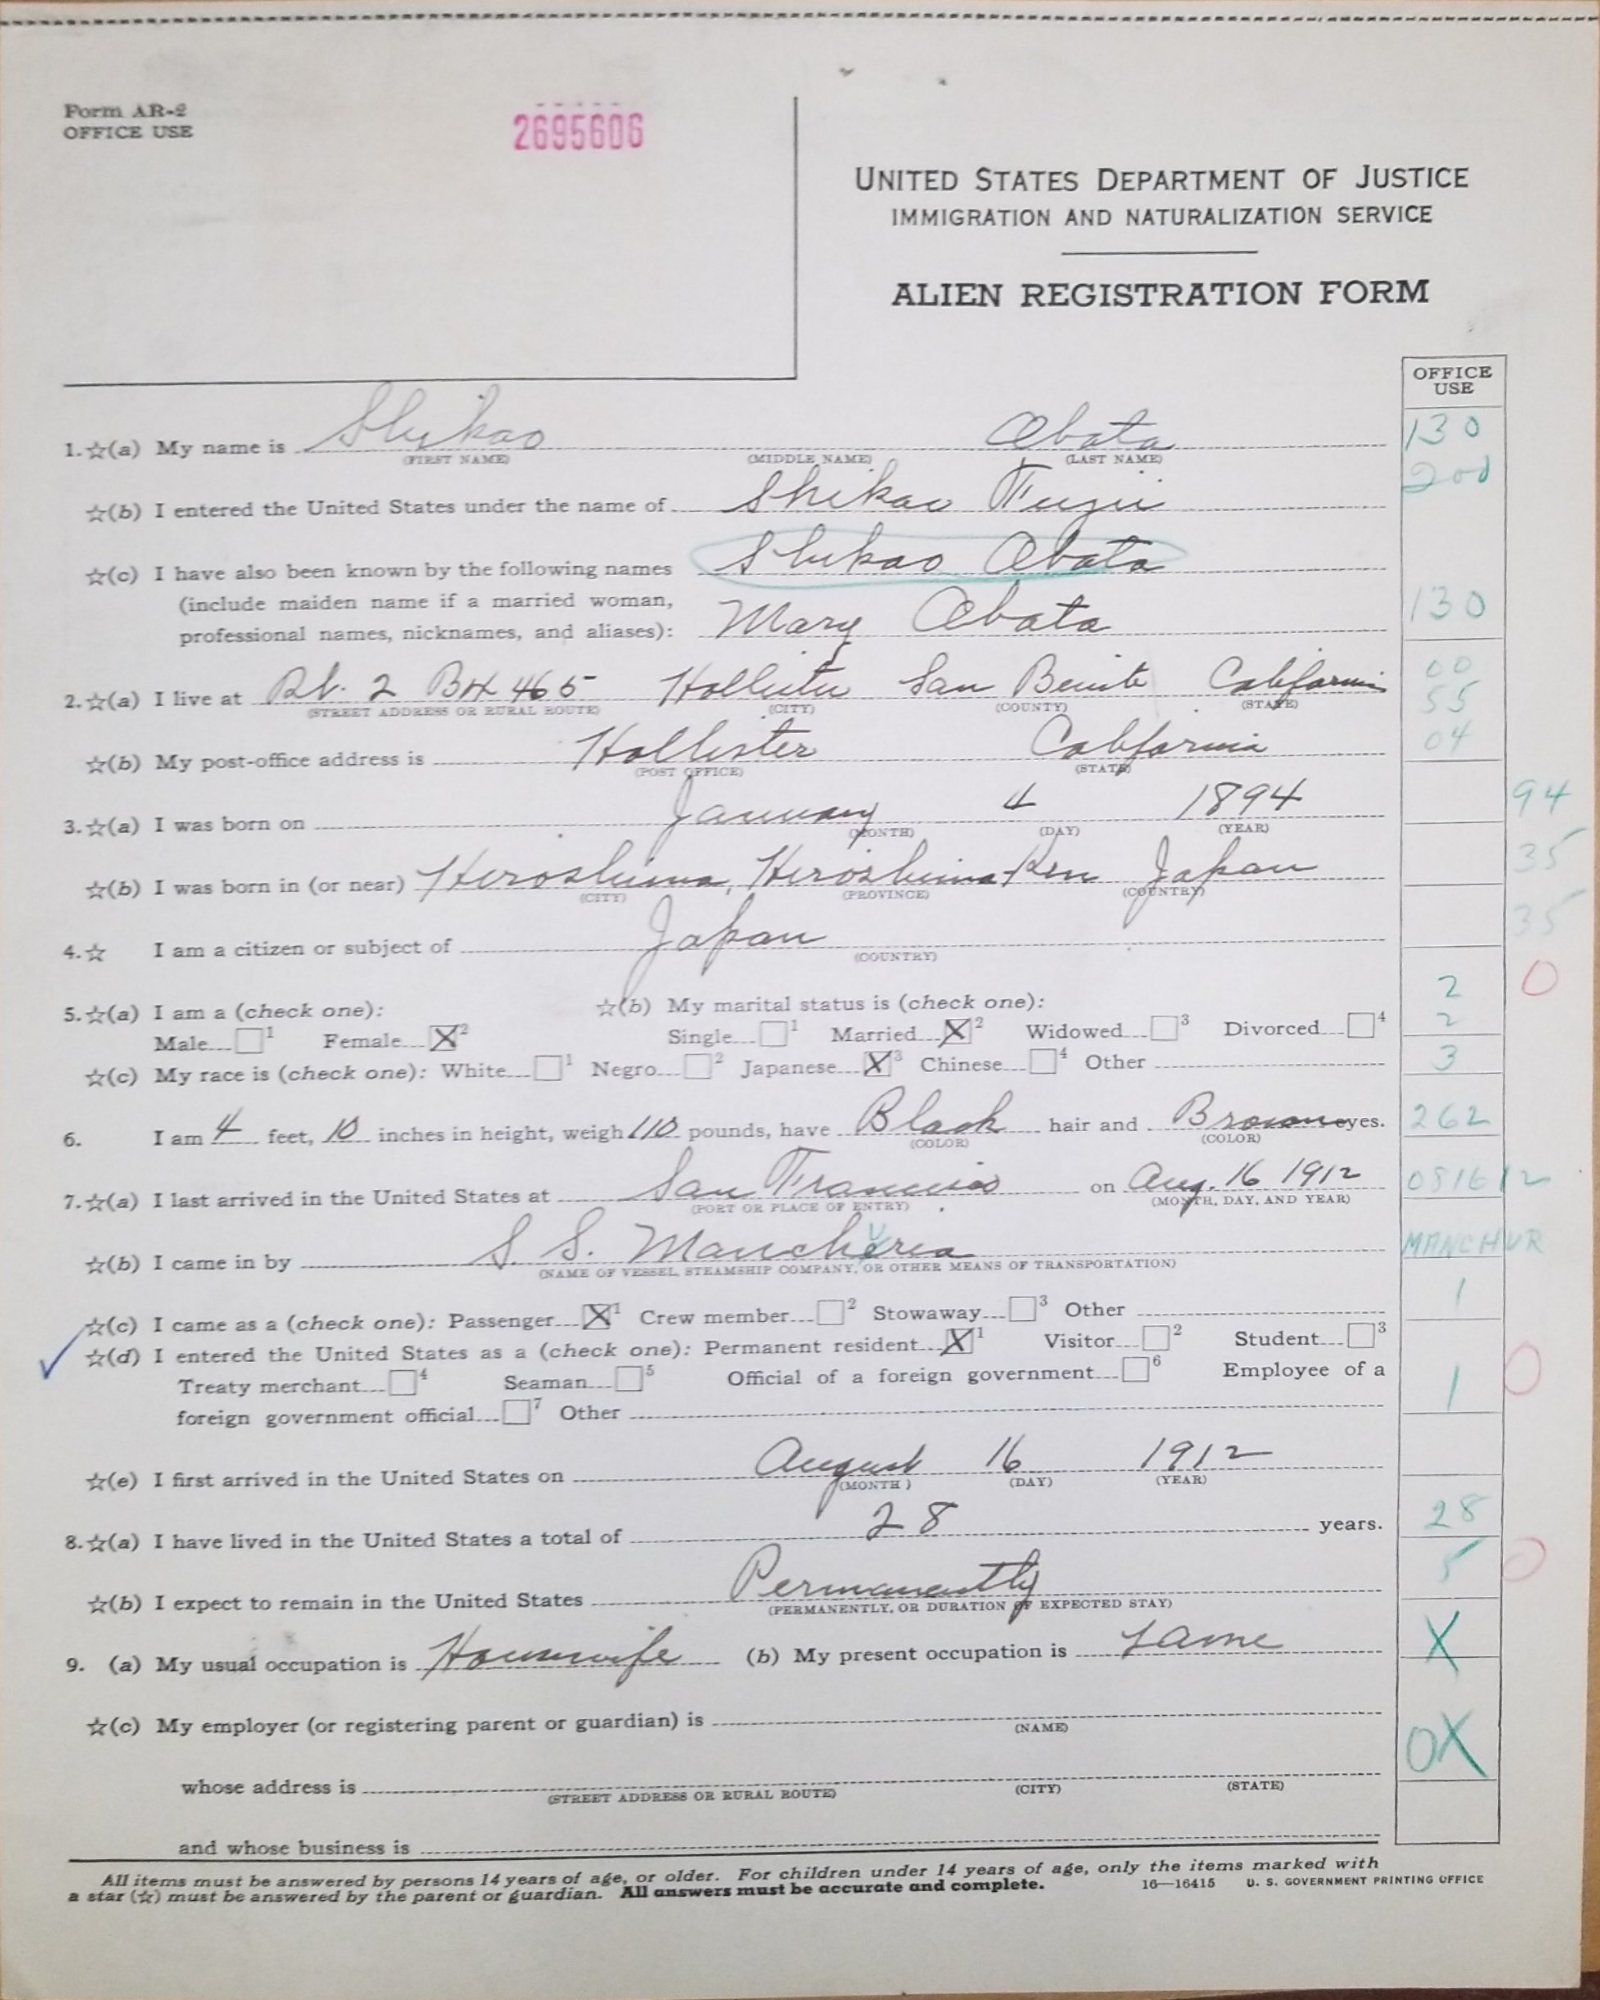 Form AR-2
OFFICE USE
2695606
UNITED STATES DEPARTMENT OF JUSTICE
IMMIGRATION AND NATURALIZATION SERVICE
ALIEN REGISTRATION FORM
OFFICE USE
1. ☆(a) My name is Shikao Obata 130
(FIRST NAME) (MIDDLE NAME) (LAST NAME)
200
☆(b) I entered the United States under the name of Shikao Fugii
☆(c) I have also been known by the following names Shikao Obata
(include maiden name if a married woman,
professional names, nicknames, and aliases): Mary Obata 130
2. ☆(a) I live at Rt. 2 Bx 465 Hollister San Benito California 00 55
(STREET ADDRESS OR RURAL ROUTE) (CITY) (COUNTY) (STATE)
☆(b) My post-office address is Hollister California 04
(POST OFFICE) (STATE)
3. ☆(a) I was born on January 4 1894 94
(MONTH) (DAY) (YEAR)
☆(b) I was born in (or near) Hiroshima, Hiroshima-Ken Japan 35
(CITY) (PROVINCE) (COUNTRY)
4. ☆ I am a citizen or subject of Japan 35
(COUNTRY)
5. ☆(a) I am a (check one): ☆(b) My marital status is (check one): 2 0
Male 1 Female X 2 Single 1 Married X 2 Widowed 3 Divorced 4 2
☆(c) My race is (check one): White 1 Negro 2 Japanese X 3 Chinese 4 Other 3
6. I am 4 feet, 10 inches in height, weigh 110 pounds, have Black hair and Brown eyes. 262
(COLOR) (COLOR)
7. ☆(a) I last arrived in the United States at San Francisco on Aug. 16 1912 081612
(PORT OR PLACE OF ENTRY) (MONTH, DAY, AND YEAR)
☆(b) I came in by S S. Manchuria MANCHUR
(NAME OF VESSEL, STEAMSHIP COMPANY, OR OTHER MEANS OF TRANSPORTATION)
☆(c) I came as a (check one): Passenger X 1 Crew member 2 Stowaway 3 Other 1
☆(d) I entered the United States as a (check one): Permanent resident X 1 Visitor 2 Student 3
Treaty merchant 4 Seaman 5 Official of a foreign government 6 Employee of a 1 0
foreign government official 7 Other
☆(e) I first arrived in the United States on August 16 1912
(MONTH) (DAY) (YEAR)
8. ☆(a) I have lived in the United States a total of 28 years. 28
☆(b) I expect to remain in the United States Permanently 5 0
(PERMANENTLY, OR DURATION OF EXPECTED STAY)
9. (a) My usual occupation is Housewife (b) My present occupation is same X
☆(c) My employer (or registering parent or guardian) is 0X
(NAME)
whose address is
(STREET ADDRESS OR RURAL ROUTE) (CITY) (STATE)
and whose business is
All items must be answered by persons 14 years of age, or older. For children under 14 years of age, only the items marked with
a star (☆) must be answered by the parent or guardian. All answers must be accurate and complete. 16—16415 U. S. GOVERNMENT PRINTING OFFICE